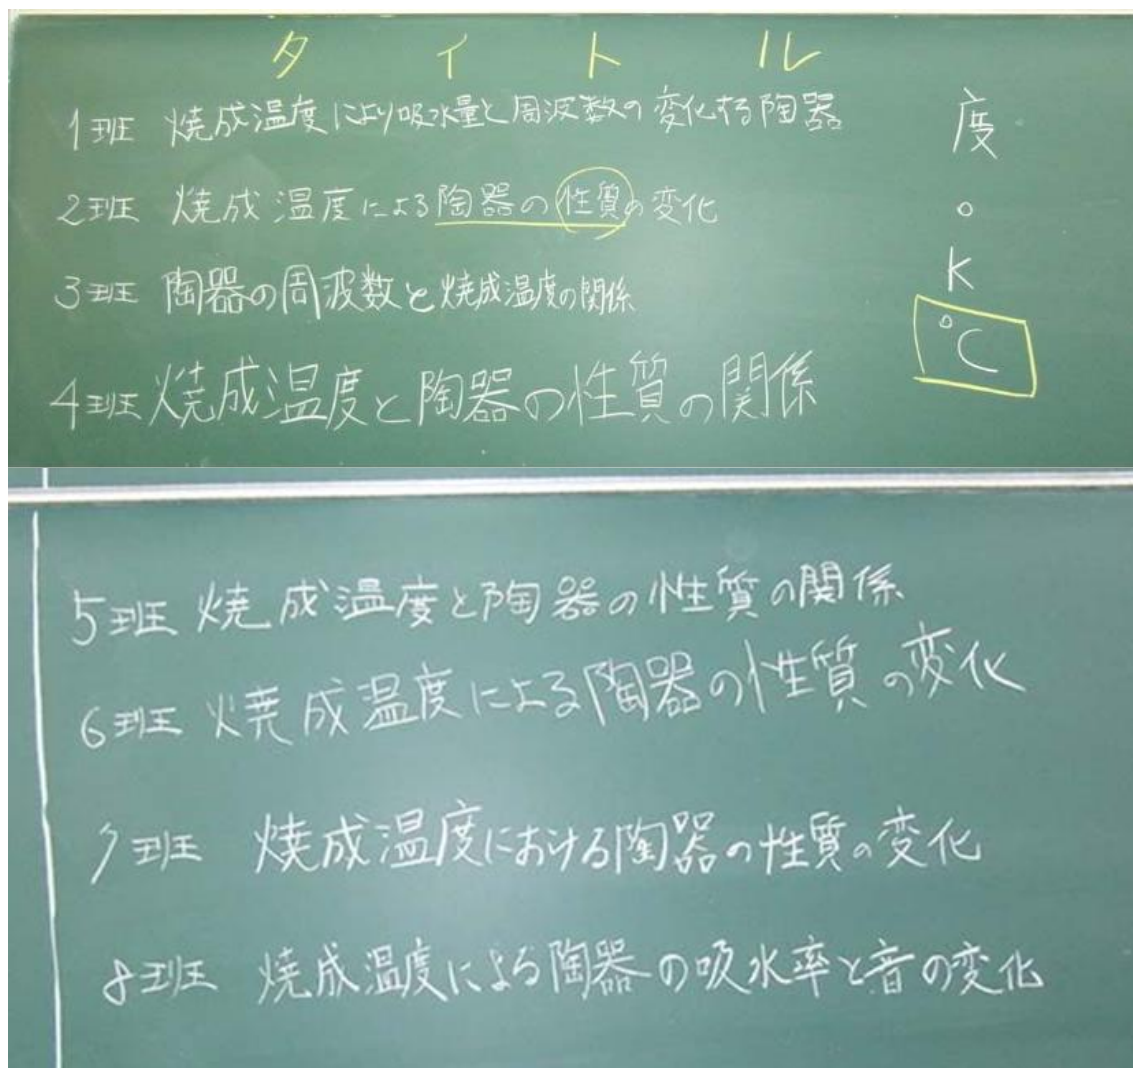 タイトル
1班 焼成温度により吸水量と周波数の変化する陶器
2班 焼成温度による陶器の性質の変化
3班 陶器の周波数と焼成温度の関係
4班 焼成温度と陶器の性質の関係
度
°
K
℃
5班 焼成温度と陶器の性質の関係
6班 焼成温度による陶器の性質の変化
7班 焼成温度における陶器の性質の変化
8班 焼成温度による陶器の吸水率と音の変化